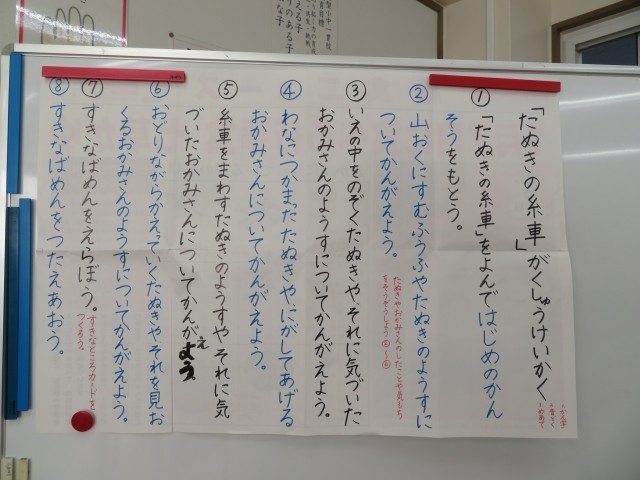 「たぬきの糸車」がくしゅうけいかく
①「たぬきの糸車」をよんではじめのかん
そうをもとう。
②山おくにすむふうふやたぬきのようすに
ついてかんがえよう。
たぬきやおかみさんのしたことや気もち
をそうぞうしよう②〜⑥
③いえの中をのぞくたぬきや、それに気づいた
おかみさんのようすについてかんがえよう。
④わなにつかまったたぬきや、にがしてあげる
おかみさんについてかんがえよう。
⑤糸車をまわすたぬきのようすや、それに気
づいたおかみさんについてかんがえよう。
⑥おどりながらかえっていくたぬきや、それを見お
くるおかみさんのようすについてかんがえよう。
⑦すきなばめんをえらぼう。
すきなところカードを
つくろう。
⑧すきなばめんをつたえあおう。